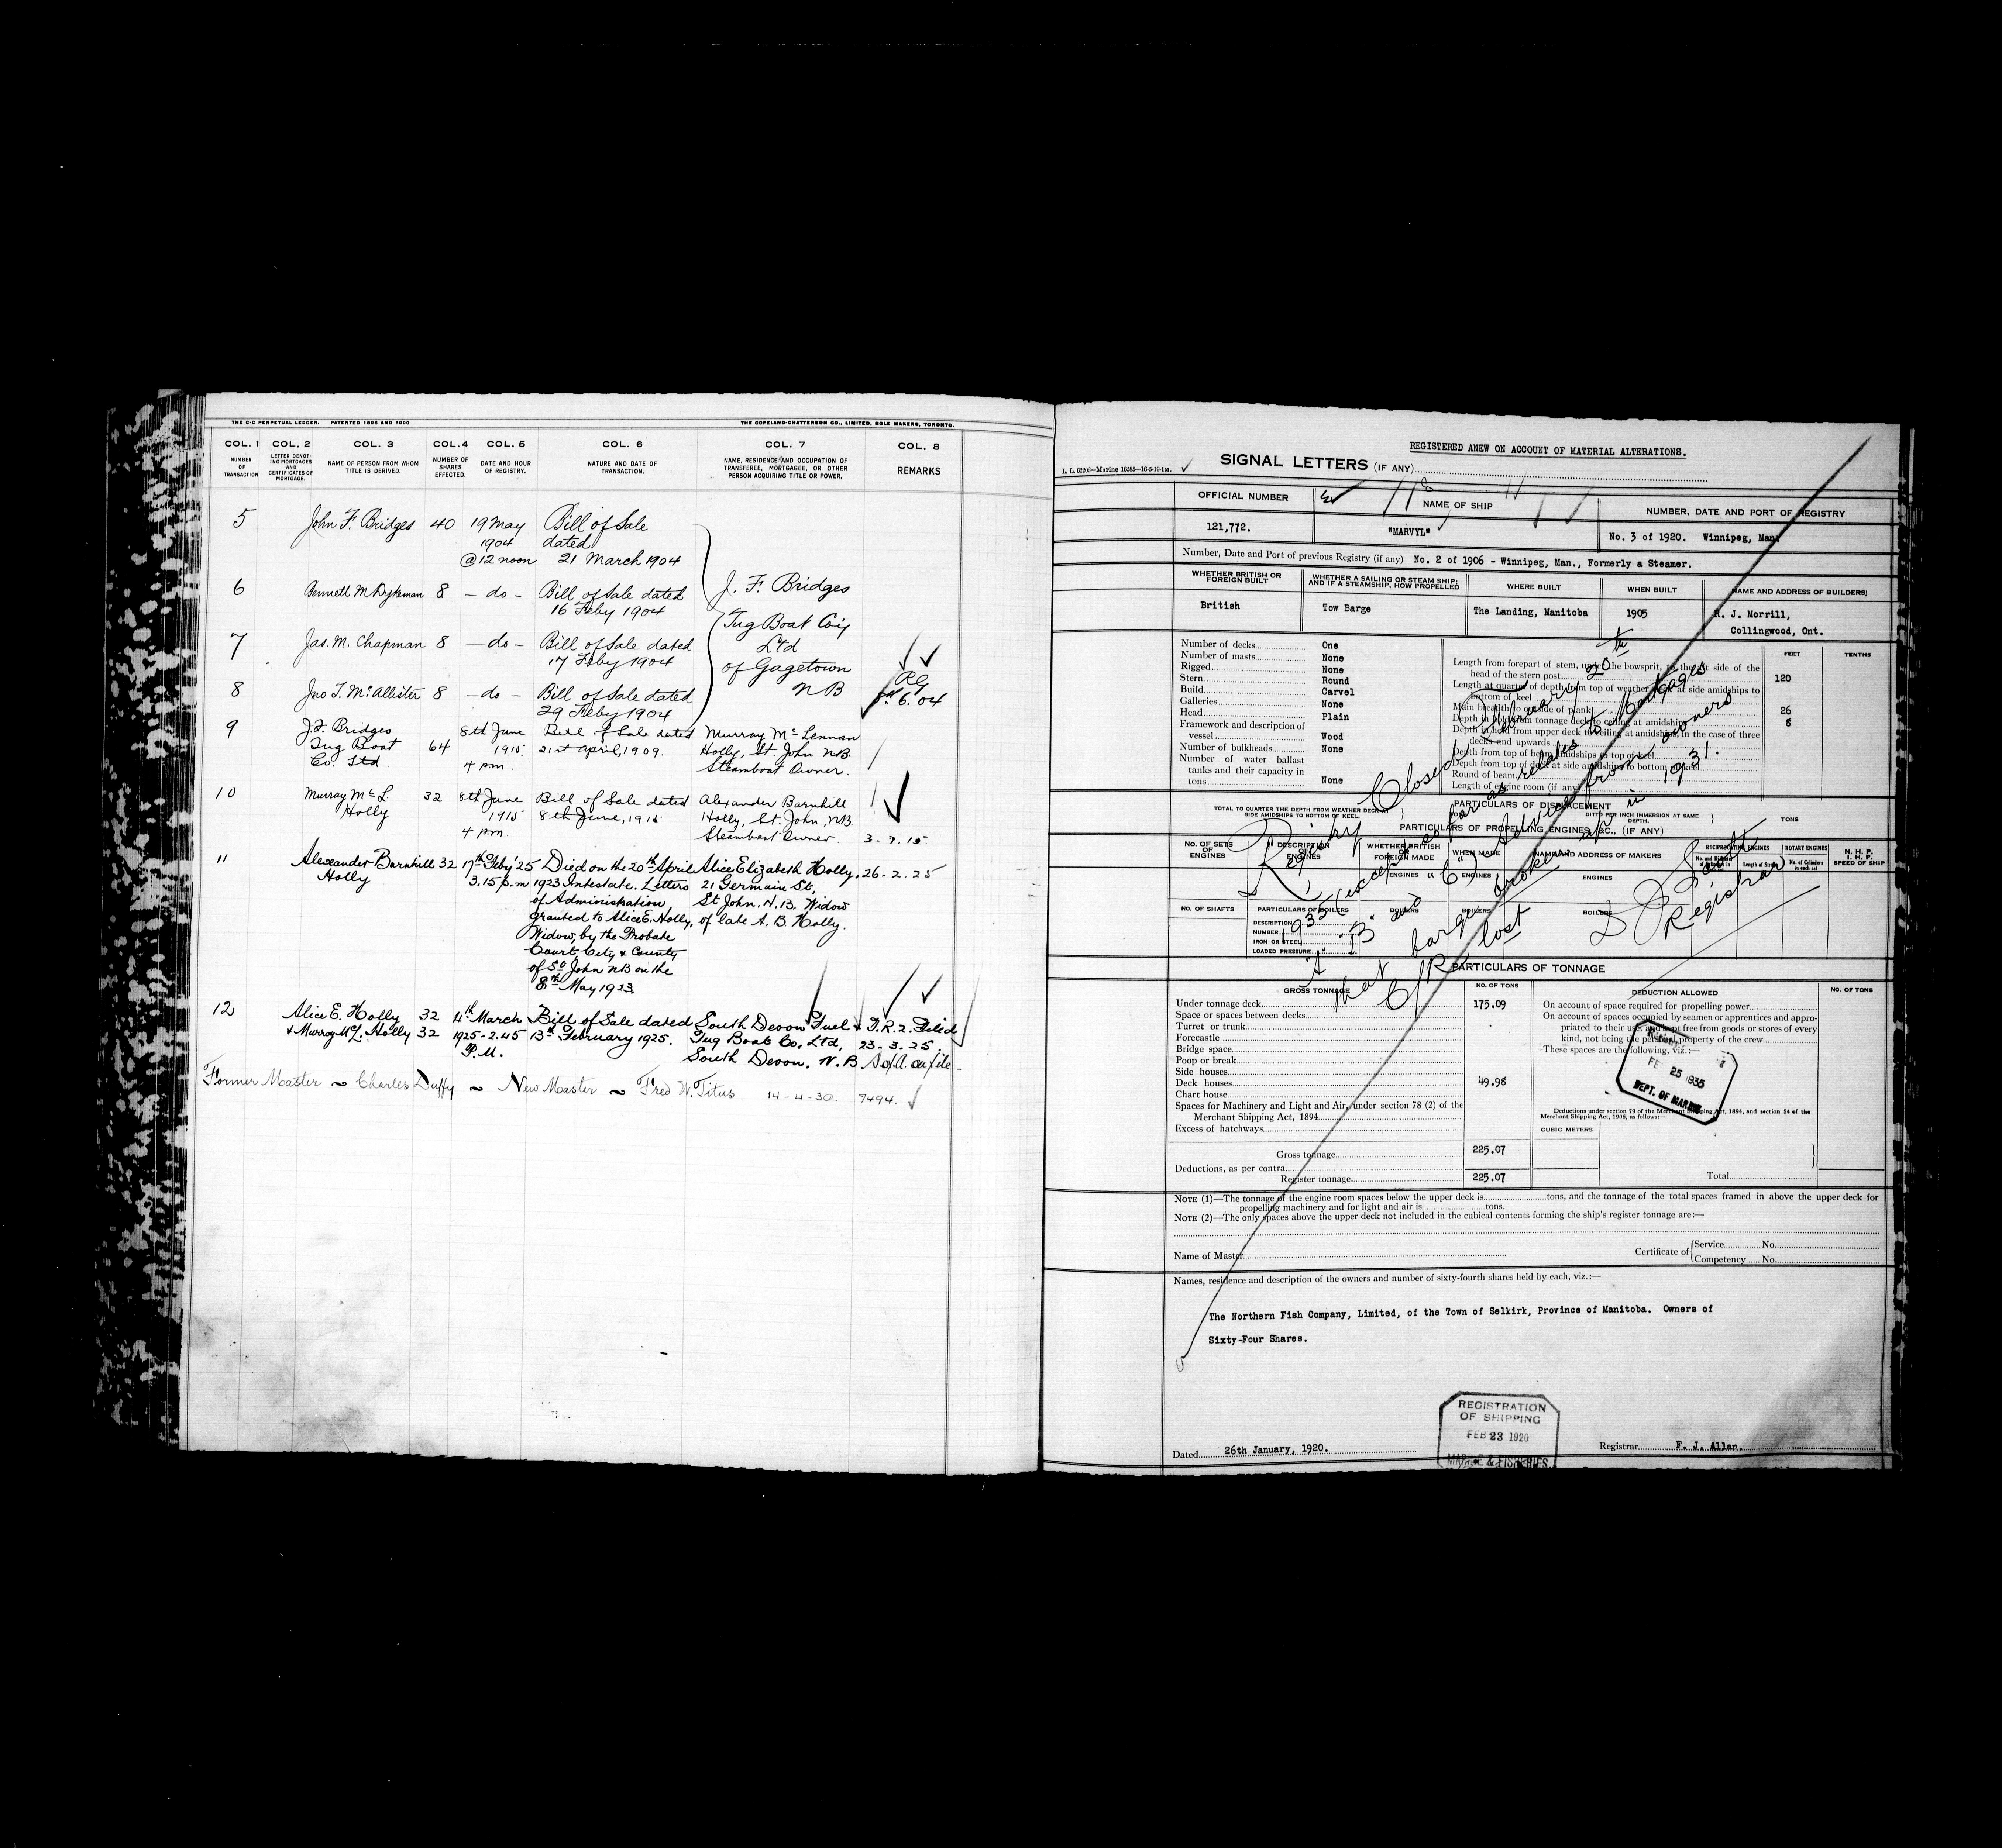 THE C-C PERPETUAL LEDGER. PATENTED 1896 AND 1900 THE COPELAND-CHATTERSON CO., LIMITED, SOLE MAKERS, TORONTO.
COL. 1 COL. 2 COL. 3 COL. 4 COL. 5 COL. 6 COL. 7 COL. 8
NUMBER OF TRANSACTION
LETTER DENOTING MORTGAGES AND CERTIFICATES OF MORTGAGE.
NAME OF PERSON FROM WHOM TITLE IS DERIVED.
NUMBER OF SHARES EFFECTED.
DATE AND HOUR OF REGISTRY.
NATURE AND DATE OF TRANSACTION.
NAME, RESIDENCE AND OCCUPATION OF TRANSFEREE, MORTGAGE, OR OTHER PERSON ACQUIRING TITLE OR POWER.
REMARKS
5 John F. Bridges 40 19 May Bill of Sale
1904 dated
@ 12 noon 21 March 1904
6 Bennett M Dykeman 8 — do — Bill of Sale dated J. F. Bridges
16 Feby 1904
Tug Boat Coy
7 Jas. M. Chapman 8 — do — Bill of Sale dated Ltd
17 Feby 1904 of Gagetown
8 Jno T. McAllister 8 — do — Bill of Sale dated N B 6. 04
29 Feby 1904
9 J.F. Bridges 8th June Bill of Sale dated Murray McLennan
Tug Boat 64 1915 21st April, 1909. Holly, St. John N.B.
Co. Ltd. 4 pm. Steamboat Owner.
10 Murray McL. 32 8th June Bill of Sale dated Alexander Barnhill
Holly 1915 8th June, 1915 Holly, St. John, N.B.
4 pm. Steamboat Owner. 3-7.15
11 Alexander Barnhill 32 17th Feby '25 Died on the 20th April Alice Elizabeth Holly, 26-2.25
Holly 3.15 p.m 1923 Intestate. Letters 21 Germain St,
of Administration St John. N.B. Widow
granted to Alice E. Holly, of late A. B. Holly.
Widow, by the Probate
Court, City & County
of St. John NB on the
8th May 1923
12 Alice E. Holly 32 4th March Bill of Sale dated South Devon Fuel & T.R.2. Filed
& Murray McL. Holly 32 1925-2.45 13th February 1925. Tug Boats Co. Ltd, 23-3.25.
P.M. South Devon. N.B. on file
Former Master ~ Charles Duffy ~ New Master ~ Fred W. Titus 14-4-30. 7494.
REGISTERED ANEW ON ACCOUNT OF MATERIAL ALTERATIONS.
L. L. 62203—Marine 16385—16-5-19-1M. SIGNAL LETTERS (IF ANY)
OFFICIAL NUMBER NAME OF SHIP NUMBER, DATE AND PORT OF REGISTRY
121,772. "MARVYL" No. 3 of 1920. Winnipeg, Man.
Number, Date and Port of previous Registry (if any) No. 2 of 1906 - Winnipeg, Man., Formerly a Steamer.
WHETHER BRITISH OR FOREIGN BUILT
WHETHER A SAILING OR STEAM SHIP; AND IF A STEAMSHIP, HOW PROPELLED
WHERE BUILT
WHEN BUILT
NAME AND ADDRESS OF BUILDERS
British Tow Barge The Landing, Manitoba 1905 J. Morrill,
Collingwood, Ont.
Number of decks One
Number of masts None
Rigged None
Stern Round
Build Carvel
Galleries None
Head Plain
Framework and description of
vessel Wood
Number of bulkheads None
Number of water ballast
tanks and their capacity in
tons None
FEET TENTHS
Length from forepart of stem, under the bowsprit, to the aft side of the
head of the stern post 120
Length at quarter of depth from top of weather deck at side amidships to
bottom of keel
Main breadth to outside of plank 26
Depth in hold from tonnage deck to ceiling at amidships 8
Depth in hold from upper deck to ceiling at amidships, in the case of three
decks and upwards
Depth from top of beam amidships to top of keel
Depth from top of deck at side amidships to bottom of keel
Round of beam
Length of engine room (if any)
Registry Closed February 20th
1935 (except so far as relates to Mortgages
"A" "B" and "C") Advice from owners
that barge broken up in 1931.
C/R lost
Registrar
PARTICULARS OF DISPLACEMENT
TOTAL TO QUARTER THE DEPTH FROM WEATHER DECK AT SIDE AMIDSHIPS TO BOTTOM OF KEEL.
DITTO PER INCH IMMERSION AT SAME DEPTH.
TONS
PARTICULARS OF PROPELLING ENGINES, &C., (IF ANY)
NO. OF SETS OF ENGINES
DESCRIPTION OF ENGINES
WHETHER BRITISH OR FOREIGN MADE
WHEN MADE
NAME AND ADDRESS OF MAKERS
RECIPROCATING ENGINES
ROTARY ENGINES
N. H. P.
I. H. P.
SPEED OF SHIP
ENGINES ENGINES ENGINES
NO. OF SHAFTS PARTICULARS OF BOILERS BOILERS BOILERS BOILERS
DESCRIPTION
NUMBER
IRON OR STEEL
LOADED PRESSURE
PARTICULARS OF TONNAGE
GROSS TONNAGE NO. OF TONS DEDUCTION ALLOWED NO. OF TONS
Under tonnage deck 175.09
Space or spaces between decks
Turret or trunk
Forecastle
Bridge space
Poop or break
Side houses
Deck houses 49.98
Chart house
Spaces for Machinery and Light and Air, under section 78 (2) of the
Merchant Shipping Act, 1894
Excess of hatchways
Gross tonnage 225.07
Deductions, as per contra
Register tonnage 225.07
On account of space required for propelling power
On account of spaces occupied by seamen or apprentices and appropriated to their use, and kept free from goods or stores of every
kind, not being the personal property of the crew
These spaces are the following, viz.:—
FEB 25 1935
DEPT. OF MARINE
Deductions under section 79 of the Merchant Shipping Act, 1894, and section 54 of the
Merchant Shipping Act, 1906, as follows:—
CUBIC METERS
Total
NOTE (1)—The tonnage of the engine room spaces below the upper deck is tons, and the tonnage of the total spaces framed in above the upper deck for
propelling machinery and for light and air is tons.
NOTE (2)—The only spaces above the upper deck not included in the cubical contents forming the ship's register tonnage are:—
Name of Master Certificate of {Service No.
{Competency No.
Names, residence and description of the owners and number of sixty-fourth shares held by each, viz.:—
The Northern Fish Company, Limited, of the Town of Selkirk, Province of Manitoba. Owners of
Sixty-Four Shares.
REGISTRATION
OF SHIPPING
FEB 23 1920
MARINE & FISHERIES.
Dated 26th January, 1920. Registrar F. J. Allan.